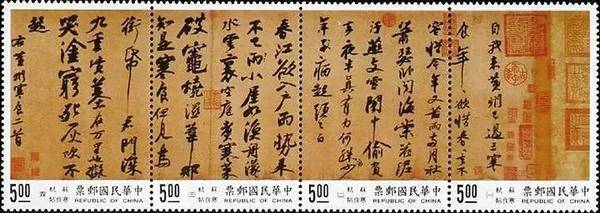 自我來黃州已過三寒
食年年欲惜春春去不
容惜今年又苦雨兩月秋
蕭瑟臥聞海棠花泥
汙燕支雪闇中偷負
去夜半真有力何殊少
年子病起頭已白
春江欲入戶雨勢來
不已雨小屋如漁舟濛
水雲裏空庖煮寒菜
破竈燒濕葦那
知是寒食但見烏
銜帋君門深
九重墳墓在万里也擬
哭塗窮死灰吹不
起
右黃州寒食二首
中華民國郵票
REPUBLIC OF CHINA
5.00
寒食帖
(一)
中華民國郵票
REPUBLIC OF CHINA
5.00
寒食帖
(二)
中華民國郵票
REPUBLIC OF CHINA
5.00
寒食帖
(三)
中華民國郵票
REPUBLIC OF CHINA
5.00
寒食帖
(四)